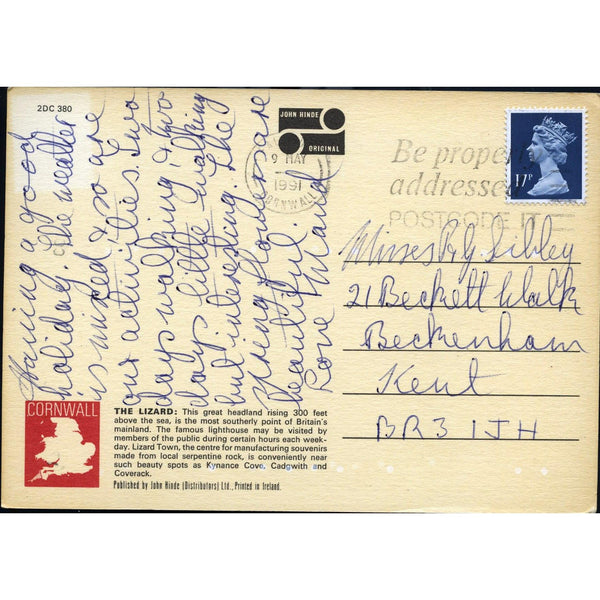 2DC 380
JOHN HINDE
ORIGINAL
9 MAY
1991
CORNWALL
Be properly
addressed
POSTCODE IT
17P
Having a good
holiday. The weather
is mixed & so are
our activities. Two
days walking & two
days little walking
but interesting. The
spring flowers are
beautiful
Love Maud
Misses P & J Sibley
21 Beckett Walk
Beckenham
Kent
BR3 1JH
CORNWALL
THE LIZARD: This great headland rising 300 feet
above the sea, is the most southerly point of Britain's
mainland. The famous lighthouse may be visited by
members of the public during certain hours each week-
day. Lizard Town, the centre for manufacturing souvenirs
made from local serpentine rock, is conveniently near
such beauty spots as Kynance Cove, Cadgwith and
Coverack.
Published by John Hinde (Distributors) Ltd., Printed in Ireland.